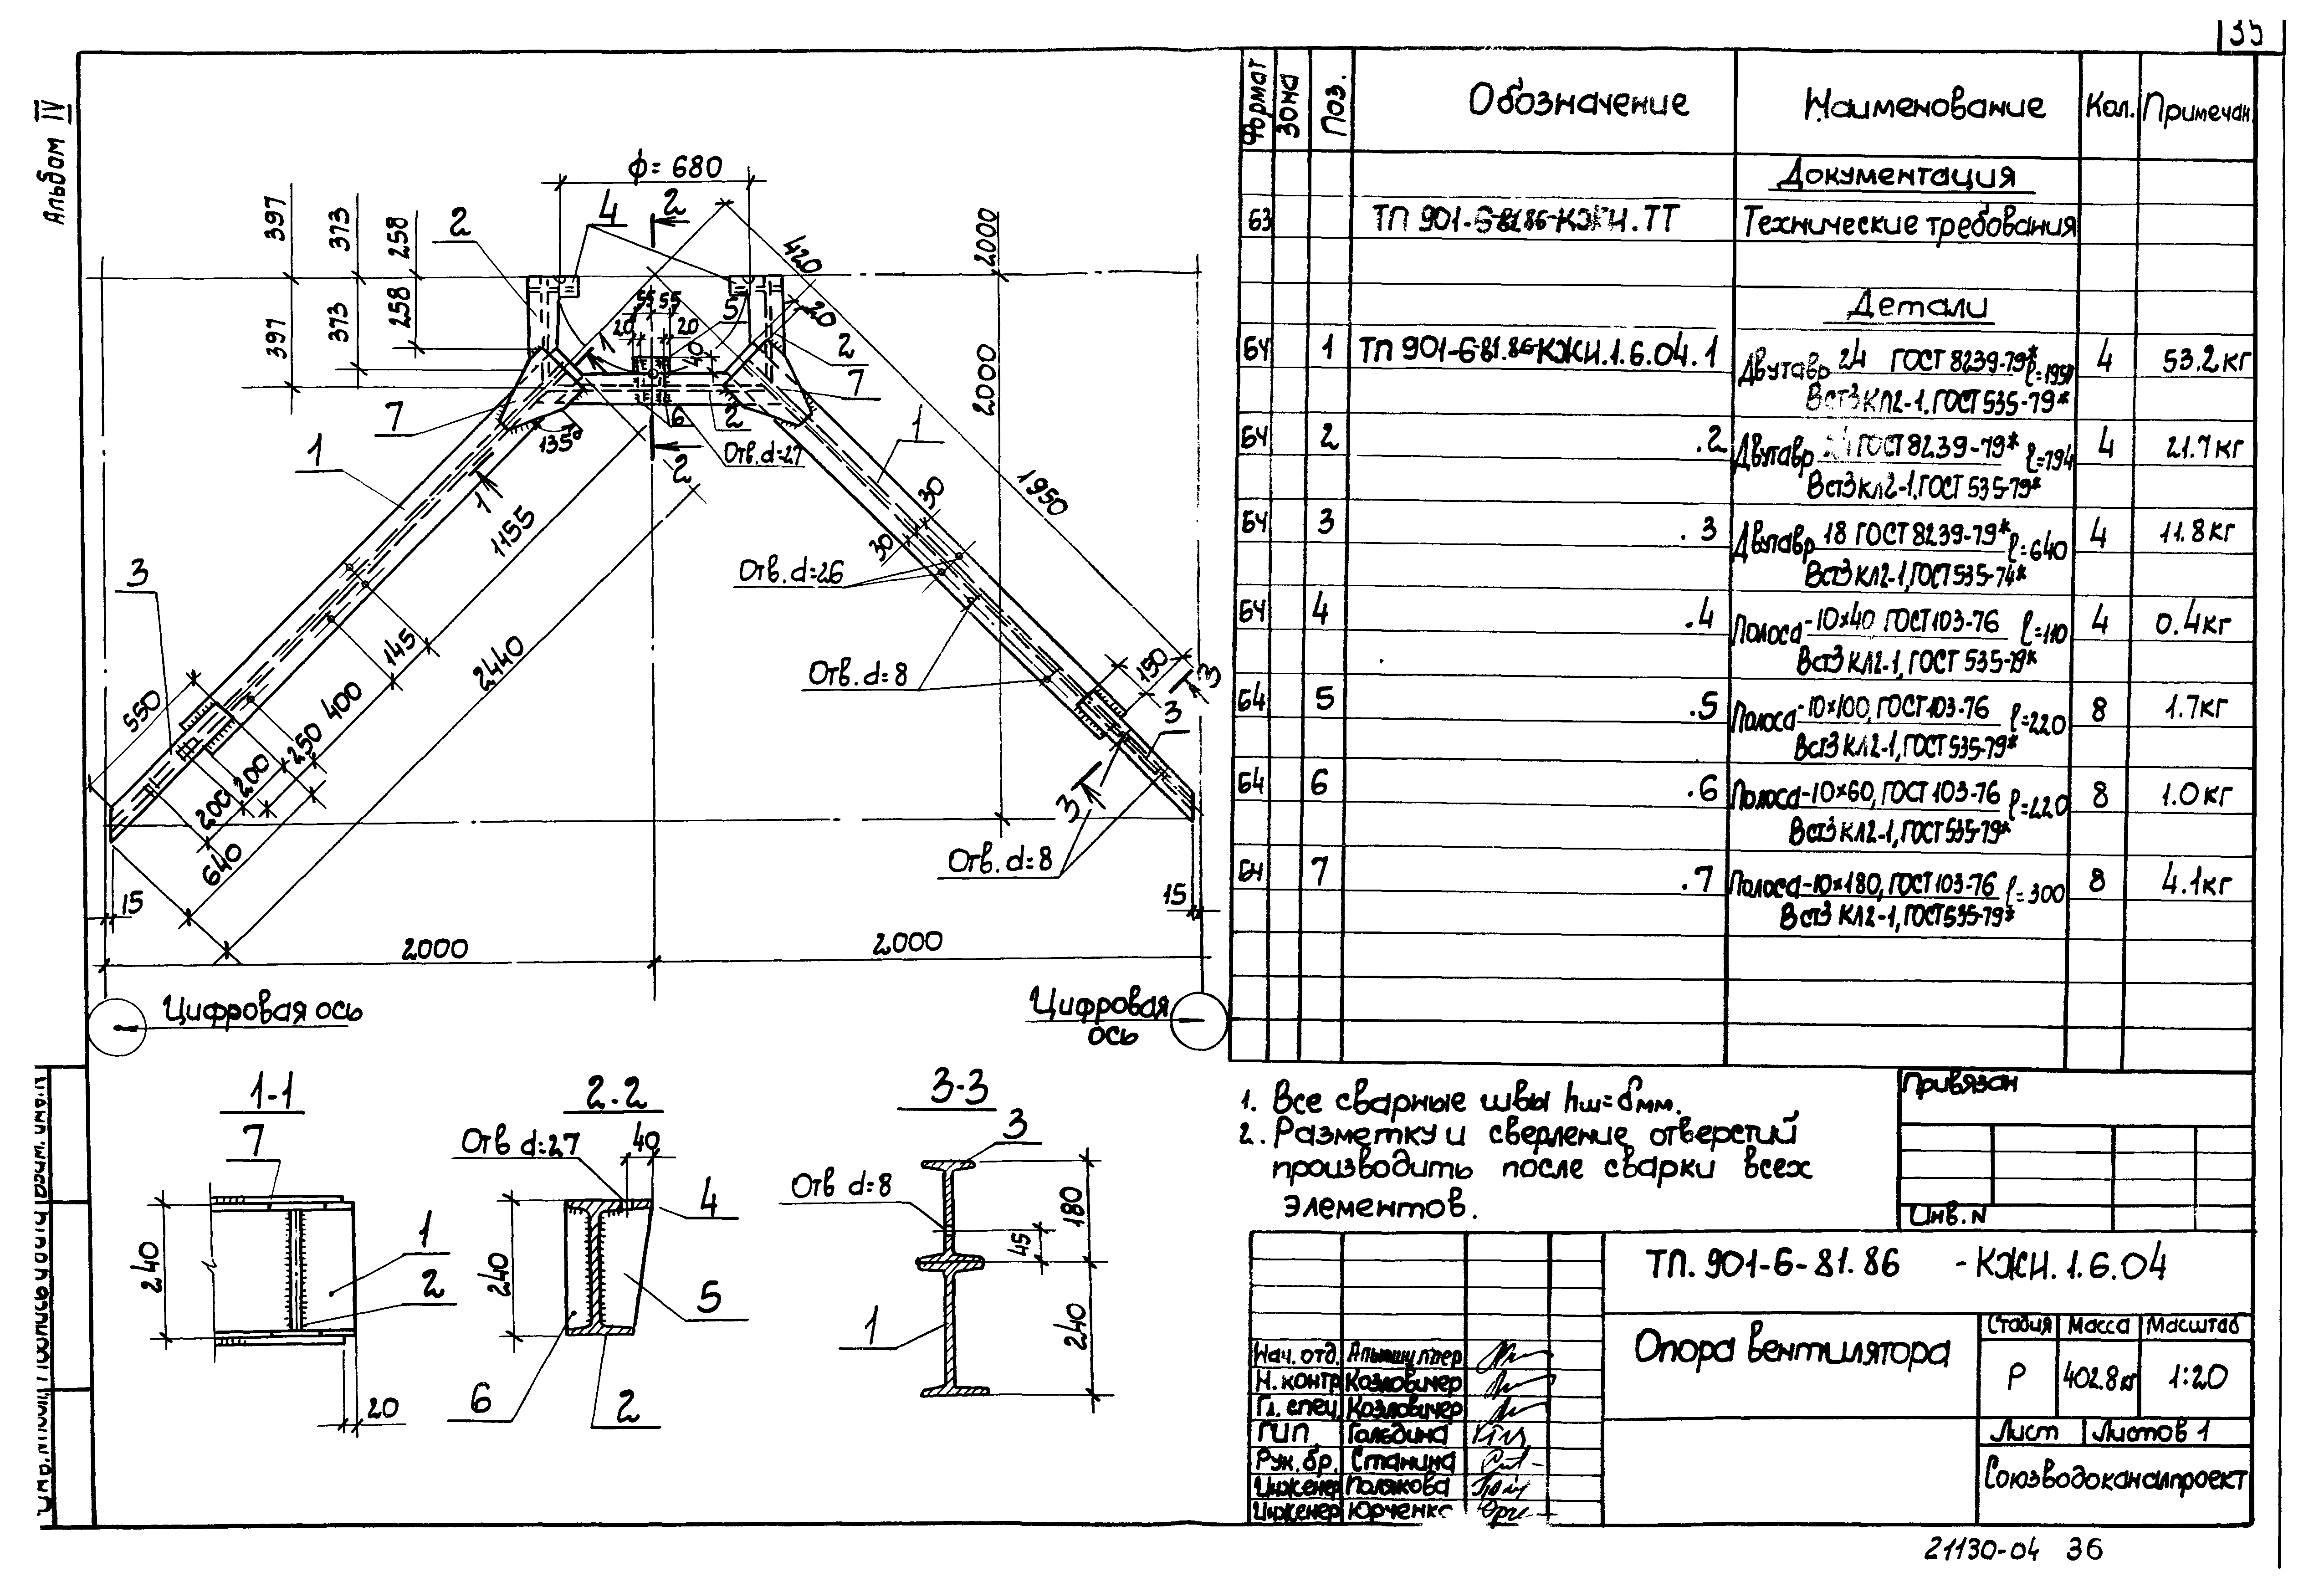 35
Альбом IV
Формат Зона Поз. Обозначение Наименование Кол. Примечан.
Документация
БЗ ТП 901-6-81.86-КЖИ.ТТ Технические требования
Детали
Б4 1 ТП 901-6-81.86-КЖИ.1.6.04.1 Двутавр 24 ГОСТ 8239-79* ℓ=1950 4 53.2кг
ВСт3КП2-1.ГОСТ 535-79*
Б4 2 .2 Двутавр 24 ГОСТ 8239-79* ℓ=794 4 21.7кг
ВСт3КП2-1,ГОСТ 535-79*
Б4 3 .3 Двутавр 18 ГОСТ 8239-79* ℓ=640 4 11.8кг
ВСт3КП2-1,ГОСТ 535-74*
Б4 4 .4 Полоса -10×40 ГОСТ 103-76 ℓ=110 4 0.4кг
ВСт3КП2-1, ГОСТ 535-79*
Б4 5 .5 Полоса -10×100, ГОСТ 103-76 ℓ=220 8 1.7кг
ВСт3КП2-1,ГОСТ 535-79*
Б4 6 .6 Полоса -10×60, ГОСТ 103-76 ℓ=220 8 1.0кг
ВСт3КП2-1,ГОСТ 535-79*
Б4 7 .7 Полоса -10×180, ГОСТ 103-76 ℓ=300 8 4.1кг
ВСт3КП2-1,ГОСТ 535-79*
ф=680
397 373 258
397 373 258
2 4 2
420
2000
2000
55 55
5
20 20
40
20
2
7
7
1
135°
6 2
Отв. d=27
2
1
1
1155
1950
30
30
Отв. d=26
3
145
2440
Отв. d=8
150
3
3
550
400
250
200
200
640
3
Отв. d=8
15
15
2000
2000
Цифровая ось
Цифровая
ось
1-1
7
240
1
2
20
2-2
Отв d=27
40
4
240
5
6
2
3-3
3
Отв d=8
180
45
1
240
1. Все сварные швы hш=6мм.
2. Разметку и сверление отверстий
производить после сварки всех
элементов.
Привязан
Инв. N
ТП. 901-6-81.86 -КЖИ.1.6.04
Опора вентилятора
Стадия Масса Масштаб
Р 402.8кг 1:20
Лист Листов 1
Союзводоканалпроект
Нач. отд. Альтшуллер
Н. контр Козловичер
Гл. спец. Козловичер
ГИП Гольдина
Рук. бр. Станина
Инженер Полякова
Инженер Юрченко
21130-04 36